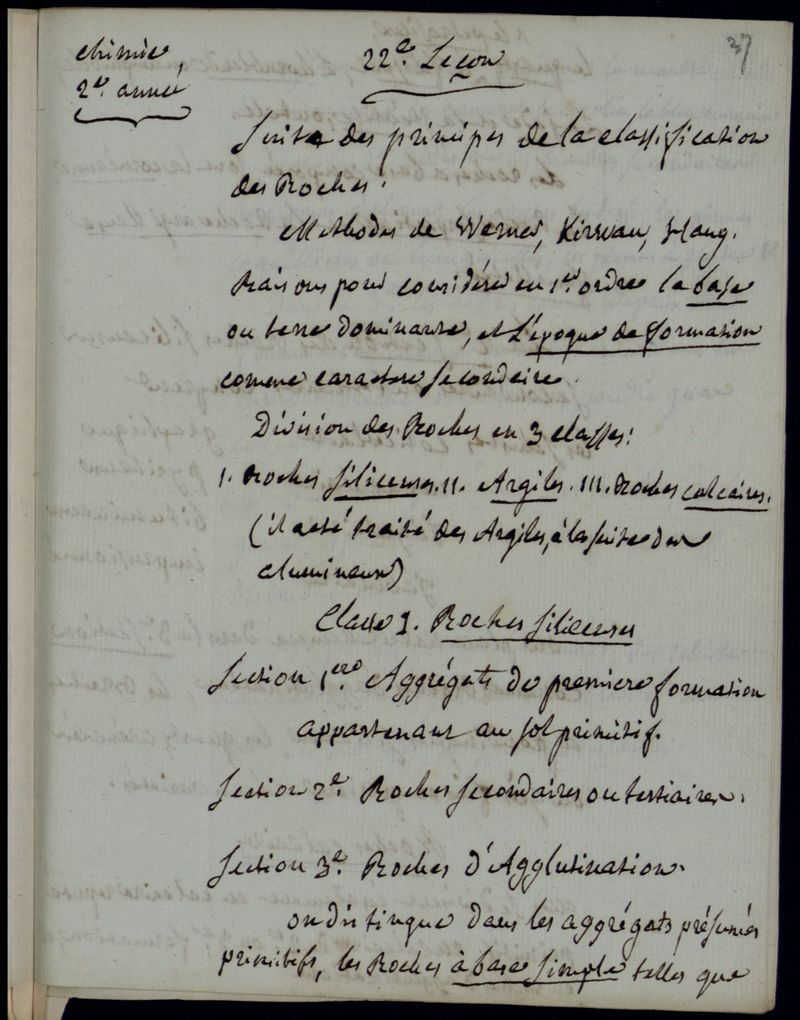 37
chimie,
2e. année
22e. Leçon
Suite des principes de la classification
des Roches.
Methodes de Werner, Kirwan, Hauy.
Raisons pour considérer en 1er. ordre la base
ou terre dominante, et l'époque de formation
comme caractere secondaire.
Division des Roches en 3 classes:
I. Roches siliceuses. II. Argiles. III. Roches calcaires.
(il a eté traité des Argiles, à la suite des
alumineux)
Classe I. Roches siliceuses
Section 1ere. Aggrégats de premiere formation
appartenant au sol primitif.
Section 2e. Roches secondaires ou tertiaires.
Section 3e. Roches d'Agglutination.
on distingue dans les aggrégats présumés
primitifs, les Roches à base simple telles que